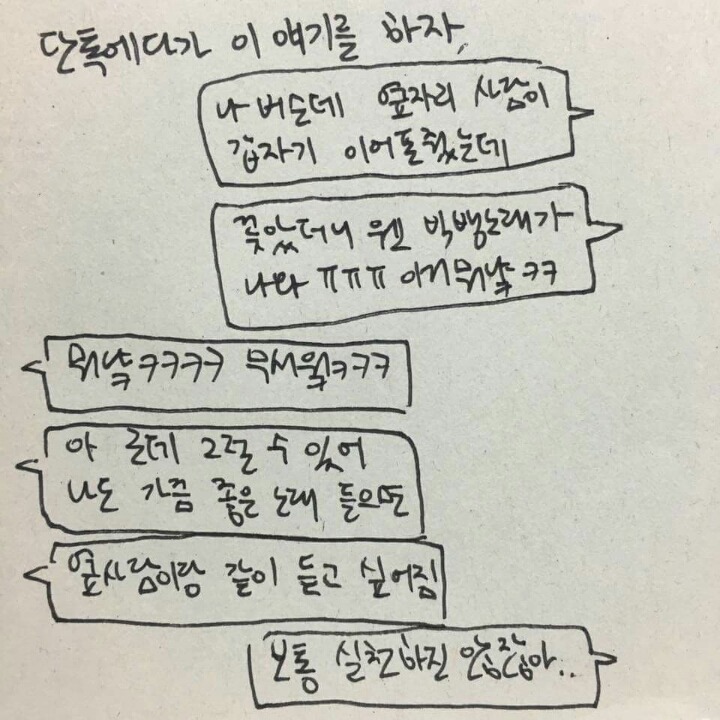 단톡에다가 이 얘기를 하자,
나 버슨데 옆자리 사람이
갑자기 이어폰줬는데
꽂았더니 웬 빅뱅노래가
나와 ㅠㅠㅠ 이거뭐냨ㅋㅋ
뭐냨ㅋㅋㅋㅋ 무서웤ㅋㅋㅋ
아 근데 그럴 수 있어
나도 가끔 좋은 노래 들으면
옆사람이랑 같이 듣고 싶어짐
보통 실천하진 않잖아..